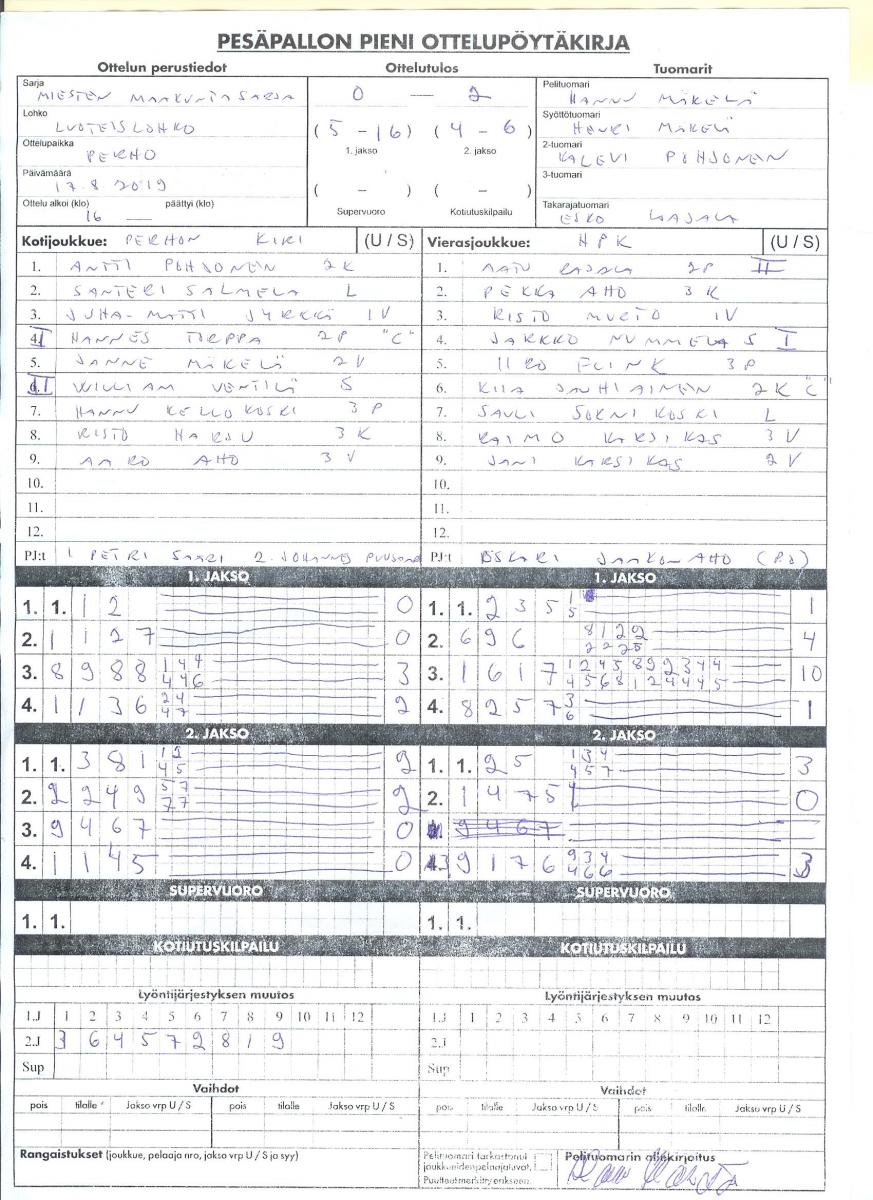 PESÄPALLON PIENI OTTELUPÖYTÄKIRJA
Ottelun perustiedot Ottelutulos Tuomarit
Sarja
MIESTEN MAAKUNTASARJA
Lohko
LUOTEISLOHKO
Ottelupaikka
PERHO
Päivämäärä
17.8 2019
Ottelu alkoi (klo) päättyi (klo)
16 —
0 — 2
(5 - 16) (4 - 6)
1. jakso 2. jakso
( - ) ( - )
Supervuoro Kotiutuskilpailu
Pelituomari
HANNU MÄKELÄ
Syöttötuomari
HENRI MÄKELÄ
2-tuomari
KALEVI POHJONEN
3-tuomari
Takarajatuomari
ESKO
Kotijoukkue: PERHON KIRI (U / S)
1. ANTTI POHJONEN 2K
2. SANTERI SALMELA L
3. JUHA-MATTI JYRKKÄ 1V
4. I HANNES TORPPA 2P "C"
5. JANNE MÄKELÄ 2V
6. II WILLIAM VENTILÄ S
7. HANNU KELLOKOSKI 3P
8. RISTO HARJU 3K
9. AARO AHO 3V
10.
11.
12.
PJ:t 1 PETRI SAARI 2. JOHANNES
Vierasjoukkue: HPK (U / S)
1. AATU RAJALA 2P II
2. PEKKA AHO 3K
3. RISTO MURTO 1V
4. JARKKO NUMMELA S I
5. IIRO FLINK 3P
6. KIIA JAUHIAINEN 2K "C"
7. SAULI SORNIKOSKI L
8. RAIMO KARSIKAS 3V
9. JANI KARSIKAS 2V
10.
11.
12.
PJ:t OSKARI JAAKONAHO (PJ)
1. JAKSO
1. 1. 1 2 0
2. 1 1 2 7 0
3. 8 9 8 8 1 4 4 3
4 4 6
4. 1 1 3 6 2 4 2
4 7
1. JAKSO
1. 1. 2 3 5 1 1
5
2. 6 9 6 8 1 2 2 4
2 2 2 5
3. 1 6 1 7 1 2 4 5 8 9 2 3 4 4 10
4 5 6 8 1 2 4 4 4 5
4. 8 2 5 7 3 1
6
2. JAKSO
1. 1. 3 8 1 1 2 2
4 5
2. 2 2 4 9 5 7 2
7 7
3. 9 4 6 7 0
4. 1 1 4 5 0
2. JAKSO
1. 1. 2 5 1 3 4 3
4 5 7
2. 1 4 7 5 0
9 4 6 7
3 9 1 7 6 9 3 4 3
4 6 6
SUPERVUORO SUPERVUORO
1. 1. 1. 1.
KOTIUTUSKILPAILU KOTIUTUSKILPAILU
Lyöntijärjestyksen muutos Lyöntijärjestyksen muutos
1.J 1 2 3 4 5 6 7 8 9 10 11 12 1.J 1 2 3 4 5 6 7 8 9 10 11 12
2.J 3 6 4 5 7 2 8 1 9 2.J
Sup Sup
Vaihdot Vaihdot
pois tilalle Jakso vrp U / S pois tilalle Jakso vrp U / S pois tilalle Jakso vrp U / S pois tilalle Jakso vrp U / S
Rangaistukset (joukkue, pelaaja nro, jakso vrp U / S ja syy)
Pelituomari tarkastanut
joukkueiden pelaajaluvat.
Puutteet merkitty erikseen.
Pelituomarin allekirjoitus